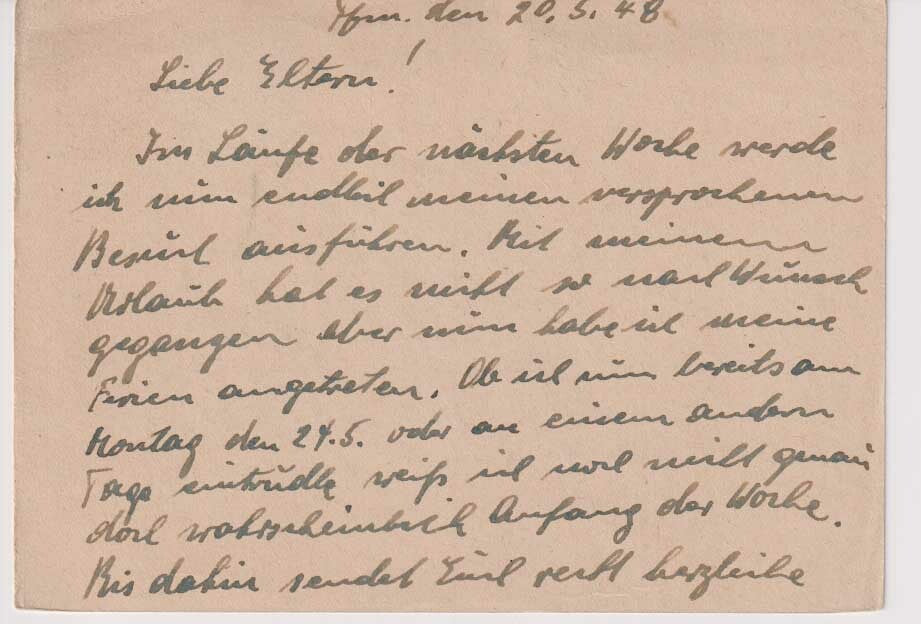 den 20.5.48
Liebe Eltern!
Im Laufe der nächsten Woche werde
ich nun endlich meinen versprochenen
Besuch ausführen. Mit meinem
Urlaub hat es nicht so nach Wunsch
gegangen aber nun habe ich meine
Ferien angetreten. Ob ich nun bereits am
Montag den 24.5. oder an einem andern
Tage eintrudle weiß ich noch nicht genau
doch wahrscheinlich Anfang der Woche.
Bis dahin sendet Euch recht herzliche